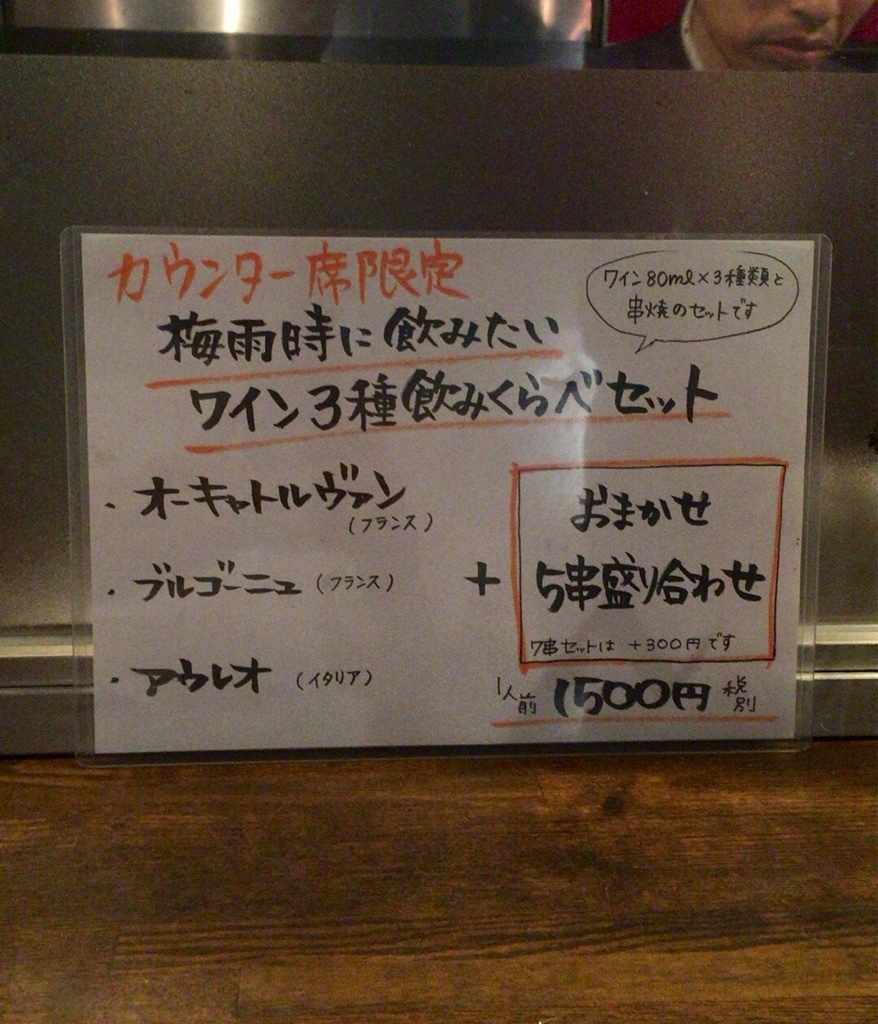 カウンター席限定
ワイン80ml×3種類と
串焼のセットです
梅雨時に飲みたい
ワイン3種飲みくらべセット
・オーキャトルヴァン
(フランス)
・ブルゴーニュ(フランス)
・アウレオ(イタリア)
+
おまかせ
5串盛り合わせ
7串セットは +300円です
1人前 1500円 税別